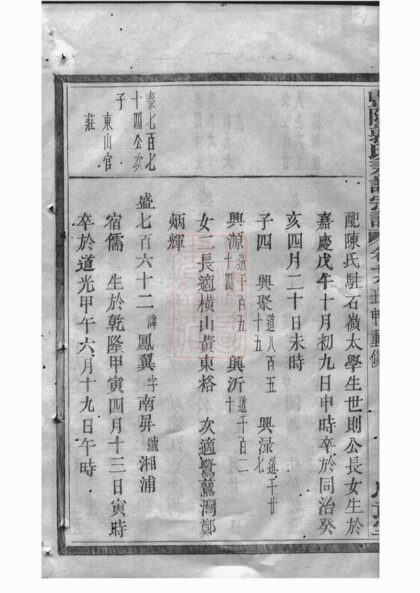 配陳氏駐石嶺太學生世則公長女生於
嘉慶戊午十月初九日申時卒於同治癸
亥四月二十日未時
子四　興聚道八百五十五　興淥道千廿七
興源道千百五十四　興沂道千百二十
女二長適橫山黃東裕　次適鷺鷥灣鄭
炳輝
泰七百七
十四公次
子
東山官
莊
盛七百六十二諱鳳翼字南昇號湘浦
宿儒　生於乾隆甲寅四月十三日寅時
卒於道光甲午六月十九日午時